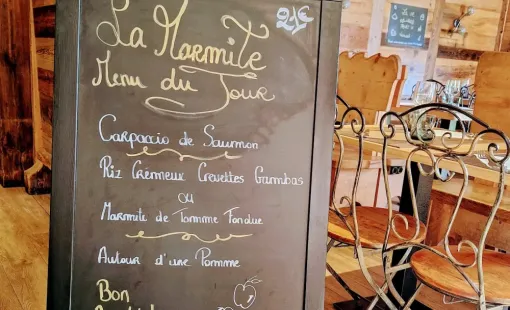 La Marmite
Menu du Jour
Carpaccio de Saumon
Riz Crémeux Crevettes Gambas
ou
Marmite de Tomme Fondue
Autour d'une Pomme
Bon